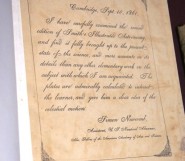 Cambridge, Sept. 10, 1861.
I have carefully examined the second
edition of Smith's Illustrated Astronomy
and find it fully brought up to the present
state of the science, and more accurate in its
details than any other elementary work on the
subject with which I am acquainted. The
plates are admirably calculated to interest
the learner, and give him a clear idea of the
celestial motions.
Simon Newcomb,